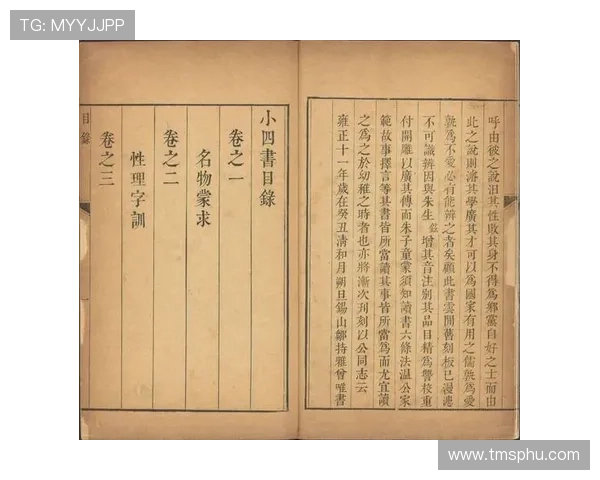 TG: MYYJJPP
呼由彼之說汨其性敗其身不得為鄉黨自好之士而由
此之說則濬其學廣其才可以為國家有用之儒孰為愛
孰為不愛必有能辨之者矣顧此書雲間舊刻板已漫漶
不可識辨因與朱生茲增其音注別其品目精為讐校重
付開雕以廣其傳而朱子童蒙須知讀書六條法溫公家
範故事擇言等其書皆所當讀其事皆所當為而尤宜讀
之為之於幼稚之時者也亦將漸次刋刻以公同志云
雍正十一年歲在癸丑清和月朔旦錫山鄒持雅曾唯書
小四書目錄
卷之一
名物蒙求
卷之二
性理字訓
卷之三
目錄
www.tmsphu.com